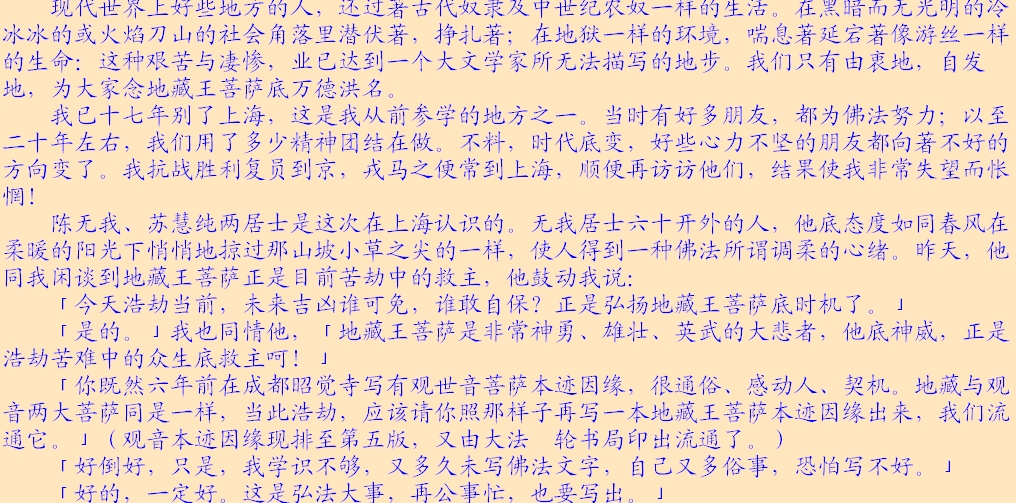 现代世界上好些地方的人，还过著古代奴隶及中世纪农奴一样的生活。在黑暗而无光明的冷
冰冰的或火焰刀山的社会角落里潜伏著，挣扎著；在地狱一样的环境，喘息著延宕著像游丝一样
的生命：这种艰苦与凄惨，业已达到一个大文学家所无法描写的地步。我们只有由衷地，自发
地，为大家念地藏王菩萨底万德洪名。
我已十七年别了上海，这是我从前参学的地方之一。当时有好多朋友，都为佛法努力；以至
二十年左右，我们用了多少精神团结在做。不料，时代底变，好些心力不坚的朋友都向著不好的
方向变了。我抗战胜利复员到京，戎马之便常到上海，顺便再访访他们，结果使我非常失望而怅
惘！
陈无我、苏慧纯两居士是这次在上海认识的。无我居士六十开外的人，他底态度如同春风在
柔暖的阳光下悄悄地掠过那山坡小草之尖的一样，使人得到一种佛法所谓调柔的心绪。昨天，他
同我闲谈到地藏王菩萨正是目前苦劫中的救主，他鼓动我说：
「今天浩劫当前，未来吉凶谁可免，谁敢自保？正是弘扬地藏王菩萨底时机了。」
「是的。」我也同情他，「地藏王菩萨是非常神勇、雄壮、英武的大悲者，他底神威，正是
浩劫苦难中的众生底救主呵！」
「你既然六年前在成都昭觉寺写有观世音菩萨本迹因缘，很通俗、感动人、契机。地藏与观
音两大菩萨同是一样，当此浩劫，应该请你照那样子再写一本地藏王菩萨本迹因缘出来，我们流
通它。」（观音本迹因缘现排至第五版，又由大法　轮书局印出流通了。）
「好倒好，只是，我学识不够，又多久未写佛法文字，自己又多俗事，恐怕写不好。」
「好的，一定好。这是弘法大事，再公事忙，也要写出。」